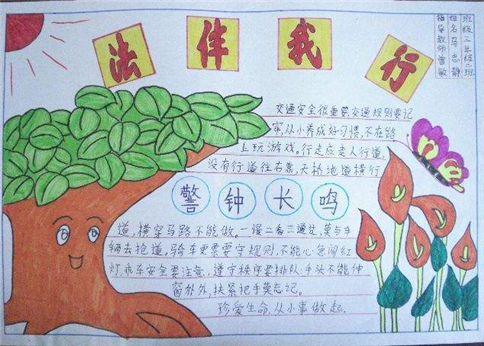 法伴我行
班级三年级二班
姓名李忠静
指导教师曹敏
交通安全很重要,交通规则要记
牢,从小养成好习惯,不在路
上玩游戏。行走应走人行道,
没有行道往右靠,天桥地道横行
警钟长鸣
道,横穿马路不能做。一慢二看三通过,莫与车
辆去抢道。骑车更要要守规则,不能心急闯红
灯,乘车安全要注意,遵守秩序要排队,手头不能伸
窗外外,扶紧把手莫忘记。
珍爱生命,从小事做起。